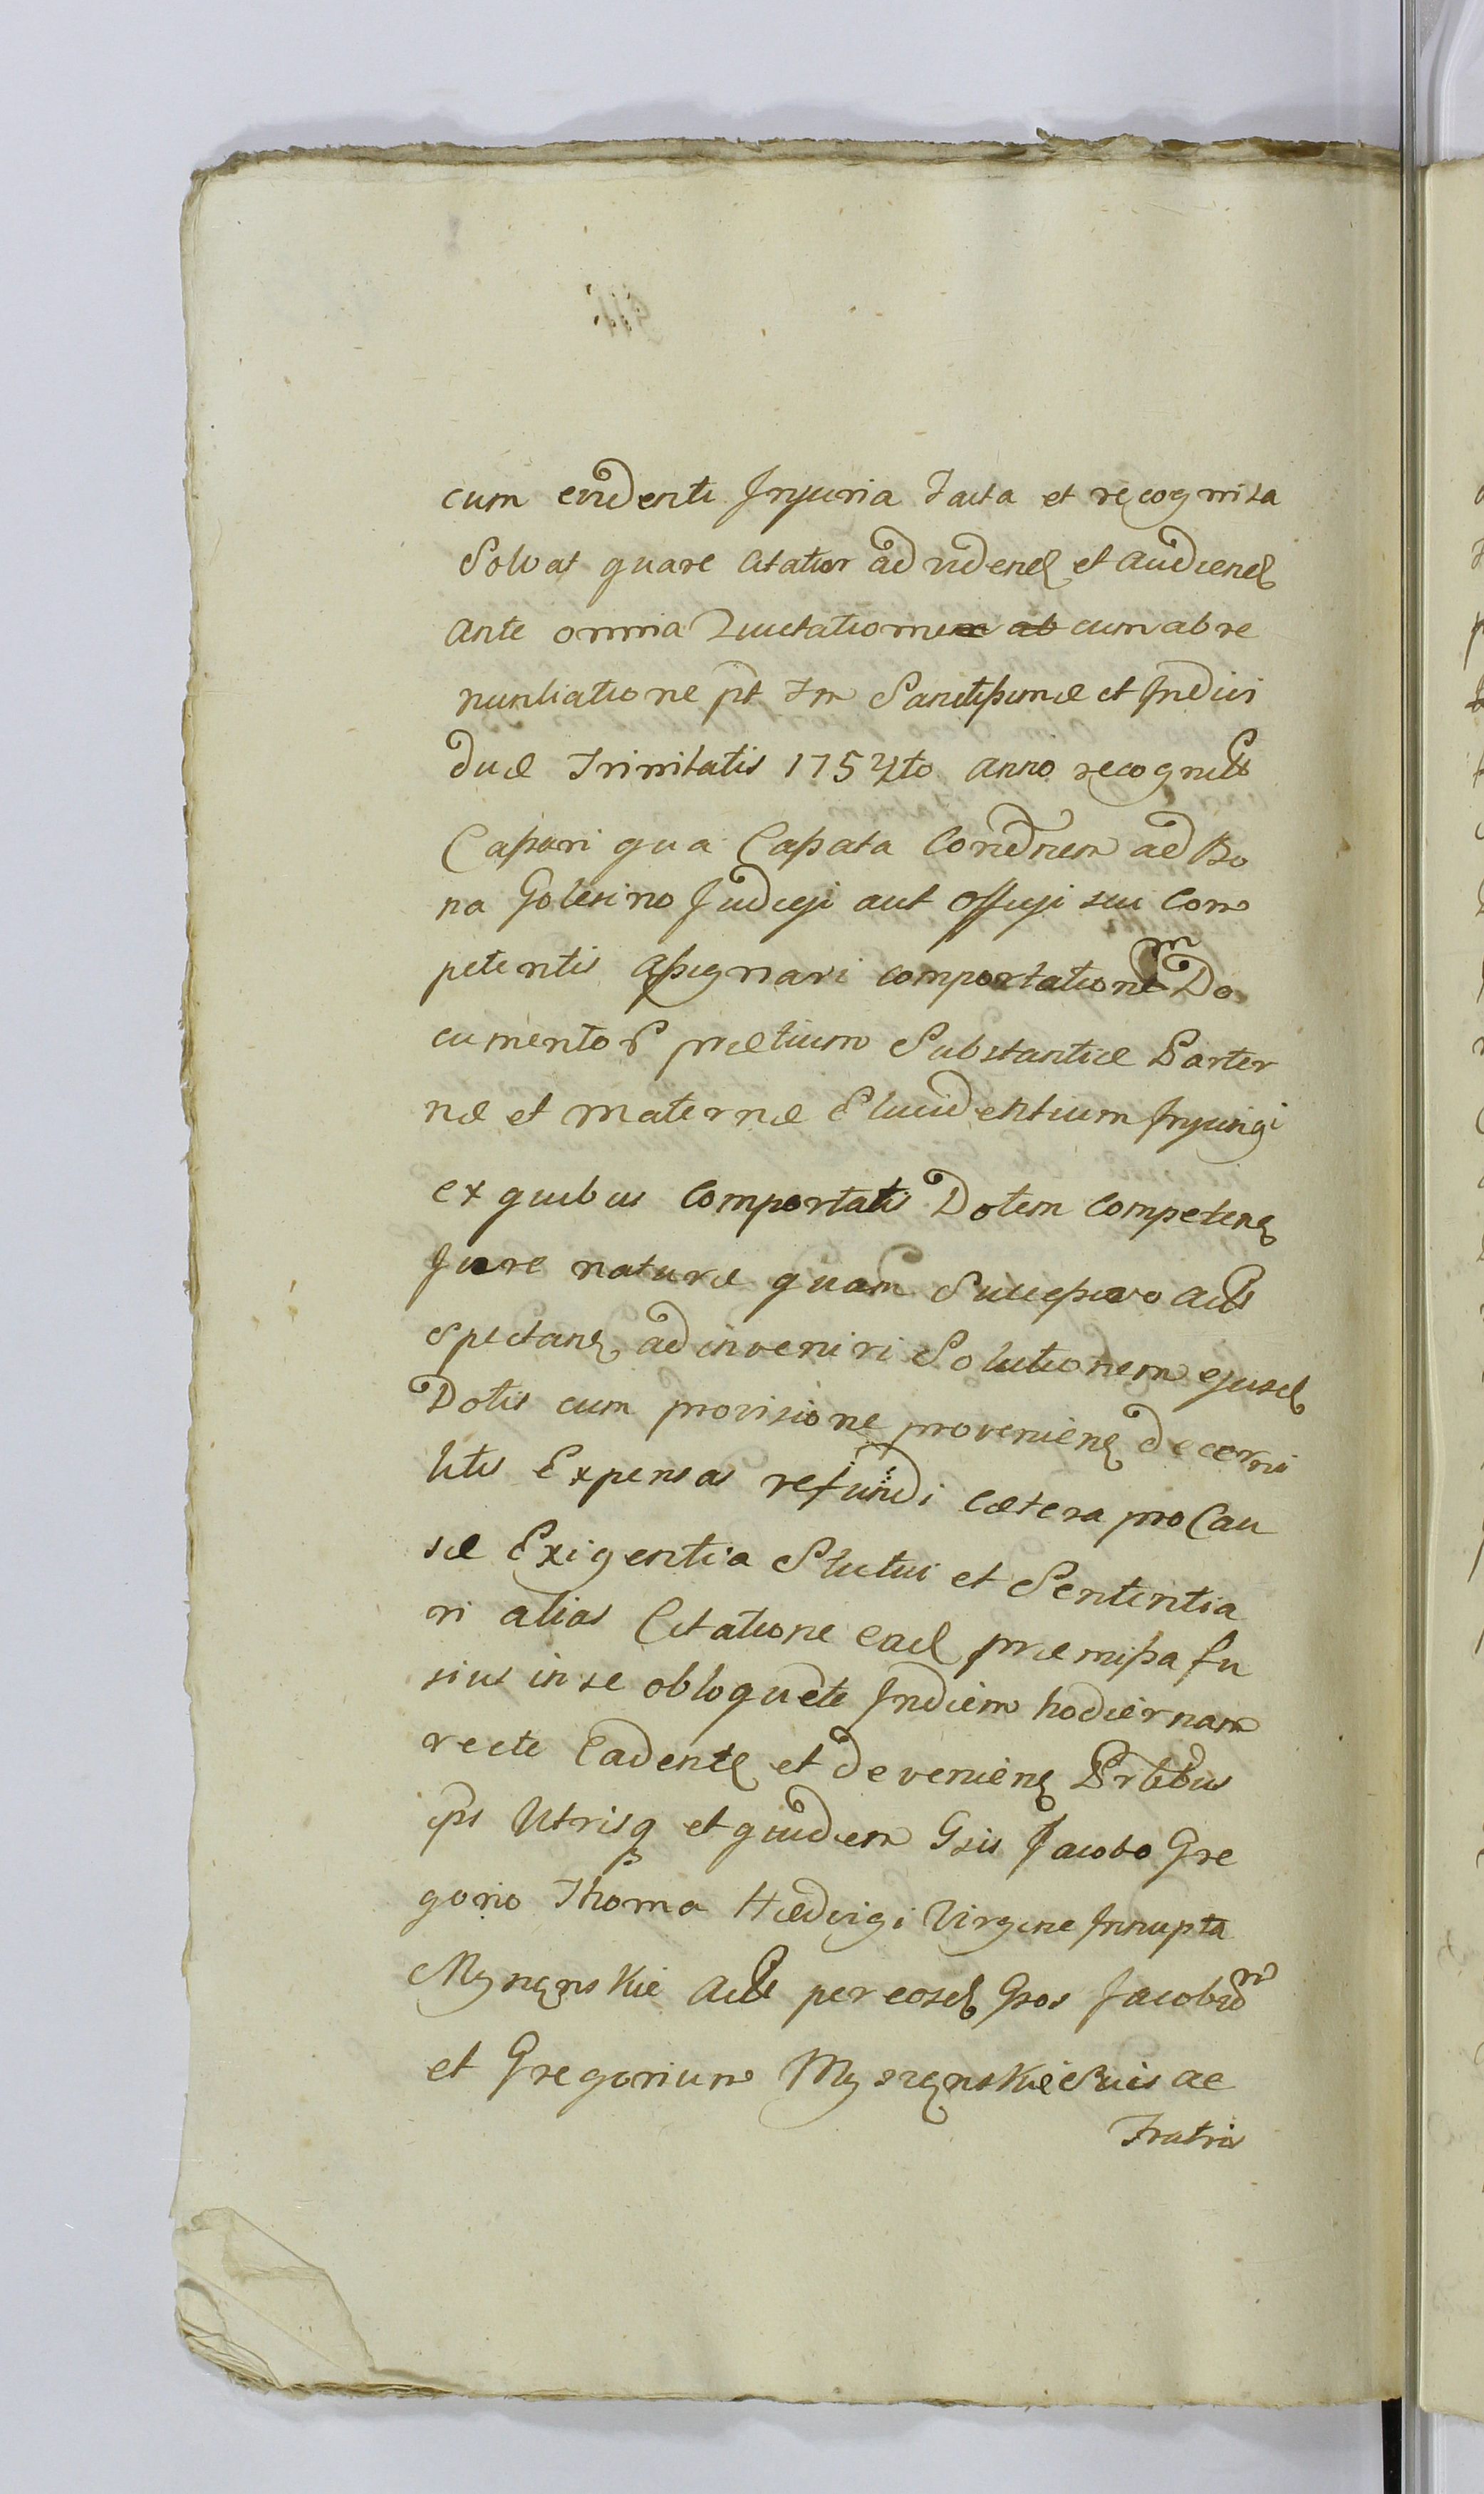 cum evidenti Injuria Facta et recognita
Solvat quare Citatur ad videnđ et audienđ
ante omnia Quietationem ab cum abre
nuntiatione pt Fm Sanctissimæ et Indivi
duæ Trinitatis 1754to anno recognitt
Cassari qua Cassata Condnem ad Bo
na Golesino Judicÿ aut Officÿ sui Com
petentis assignari comportationem Do
cumentor prætium Substantiæ Parter
næ et maternæ Elucidentium Injungi
ex quibus Comportatis Dotem competenɇ
Jure naturæ quam Successivo act
spectanɇ adinveniri Solutionem ejusđ
Dotis cum provisione provenienɇ decerni
litis Expensas refundi Cætera pro Cau
sæ Exigentia Statui et Sententia
ri alias Citatione eađ præmissa fu
sius in se obloquete Indiem hodiernam
recte Cadentɇ et devenienɇ Prtibus
ips Utrisq et quidem Gsis Jacobo Gre
gorio Thoma Hædvigi Virgine Innupta
act per eosđ Gsos Jacobum
et Gregorium Myszenskie Suis ac
Fratris